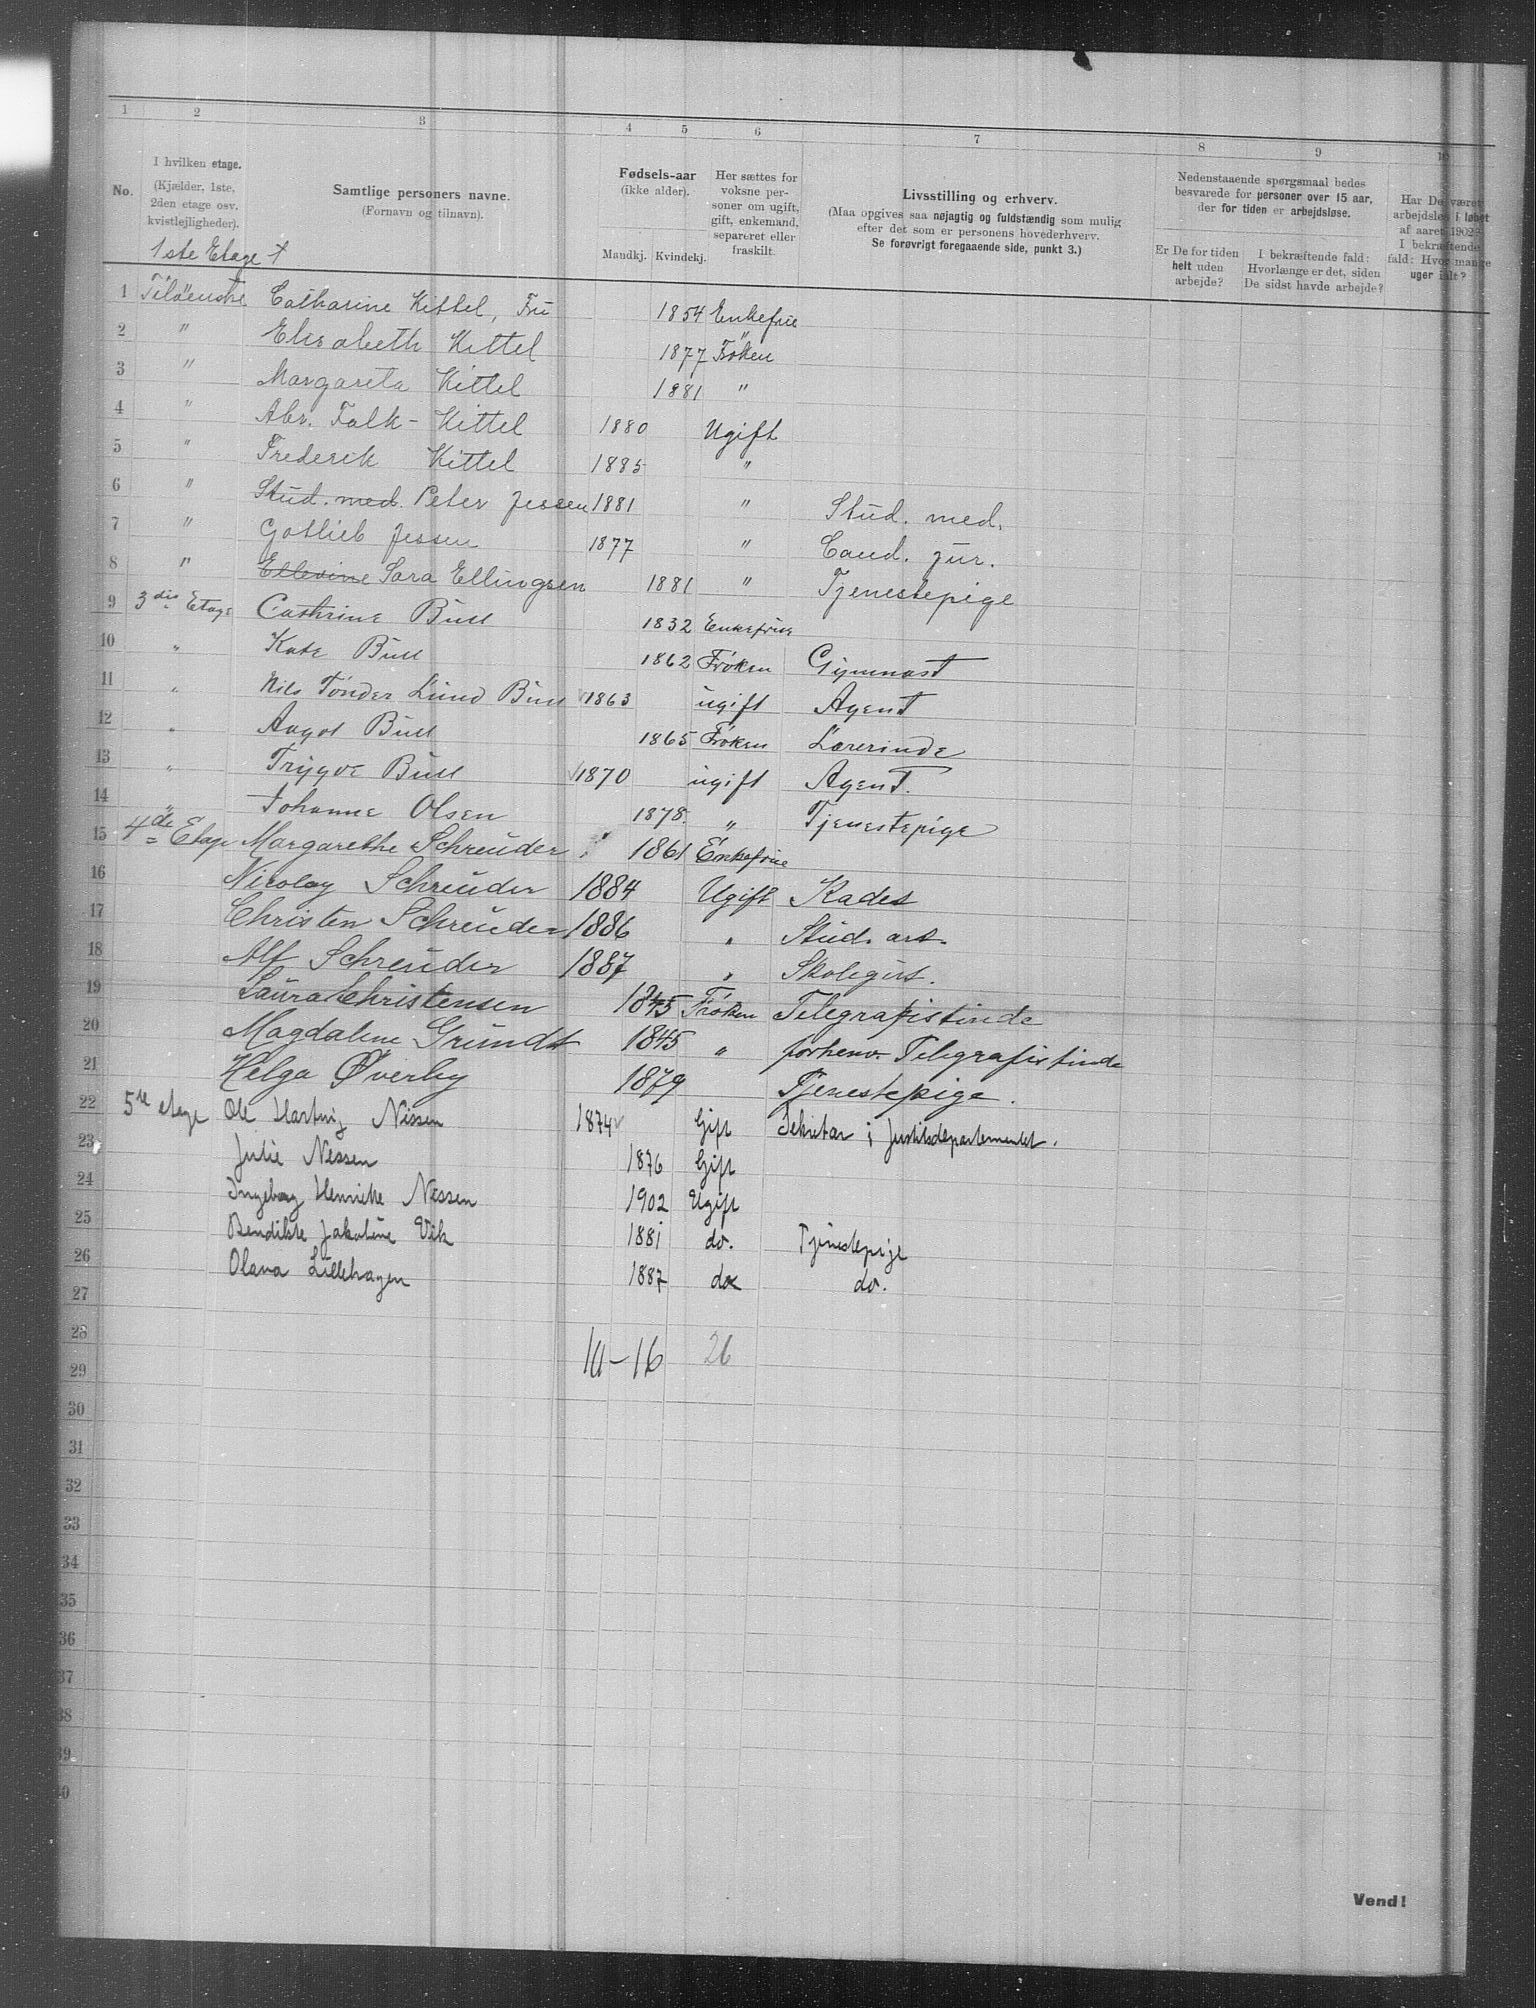 1 2 3 4 5 6 7 8 9 10
No.
I hvilken etage.
(Kjælder, 1ste,
2den etage osv.
kvistlejligheder).
Samtlige personers navne.
(Fornavn og tilnavn).
Fødsels-aar
(ikke alder).
Mandkj. Kvindekj.
Her sættes for
voksne per-
soner om ugift,
gift, enkemand,
separeret eller
fraskilt.
Livsstilling og erhverv.
(Maa opgives saa nøjagtig og fuldstændig som mulig
efter det som er personens hovederhverv.
Se forøvrigt foregaaende side, punkt 3.)
Nedenstaaende spørgsmaal bedes
besvarede for personer over 15 aar,
der for tiden er arbejdsløse.
Er De for tiden
helt uden
arbejde?
I bekræftende fald:
Hvorlænge er det, siden
De sidst havde arbejde?
Har De været
arbejdsløs i løbet
af aaret 1902?
I bekræftende
fald: Hvor mange
uger ialt?
1ste Etage +
1 Tilöenste Catharine Kittel, Frü 1854 Enkefrue
2 " Elisabeth Kittel 1877 Frøken
3 " Margareta Kittel 1881 "
4 " Abr. Falk-Kittel 1880 Ugift
5 " Frederik Kittel 1885 "
6 " Stud. med. Peter Jessen 1881 " Stud. med.
7 " Gotlieb Jessen 1877 " Cand. jur.
8 " Ellevine Sara Ellingsen 1881 " Tjenestepige
9 3die Etage Cathrine Bull 1832 Enkefrue
10 " Kate Bull 1862 Frøken Gymnast
11 " Nils Tönder Lund Bull 1863 ugift Agent
12 " Aagot Bull 1865 Frøken Lærerinde
13 " Trygve Bull 1870 ugift Agent.
14 " Johanne Olsen 1878. " Tjenestepige
15 4de Etage Margarethe Schreuder 1861 Enkefrue
16 Nicolay Schreuder 1884 Ugift Kadet
17 Christen Schreuder 1886 " Stud. art.
18 Alf Schreuder 1887 " Skolegut.
19 Laura Christensen 1845 Frøken Telegrafistinde
20 Magdalene Grundt 1845 " forhenv. Telegrafistinde
21 Helga Øverby 1879 Tjenestepige.
22 5te etage Ole Hartvig Nissen 1874 Gift Sekretær i Justitsdepartementet.
23 Julie Nissen 1876 Gift
24 Ingeborg Henrikke Nissen 1902 Ugift
25 Bendikte Jakobine Vik 1881 do. Tjenestepige
26 Olava Lillehagen 1887 do do.
27
28
10-16 26
29
30
31
32
33
34
35
36
37
38
39
40
Vend!